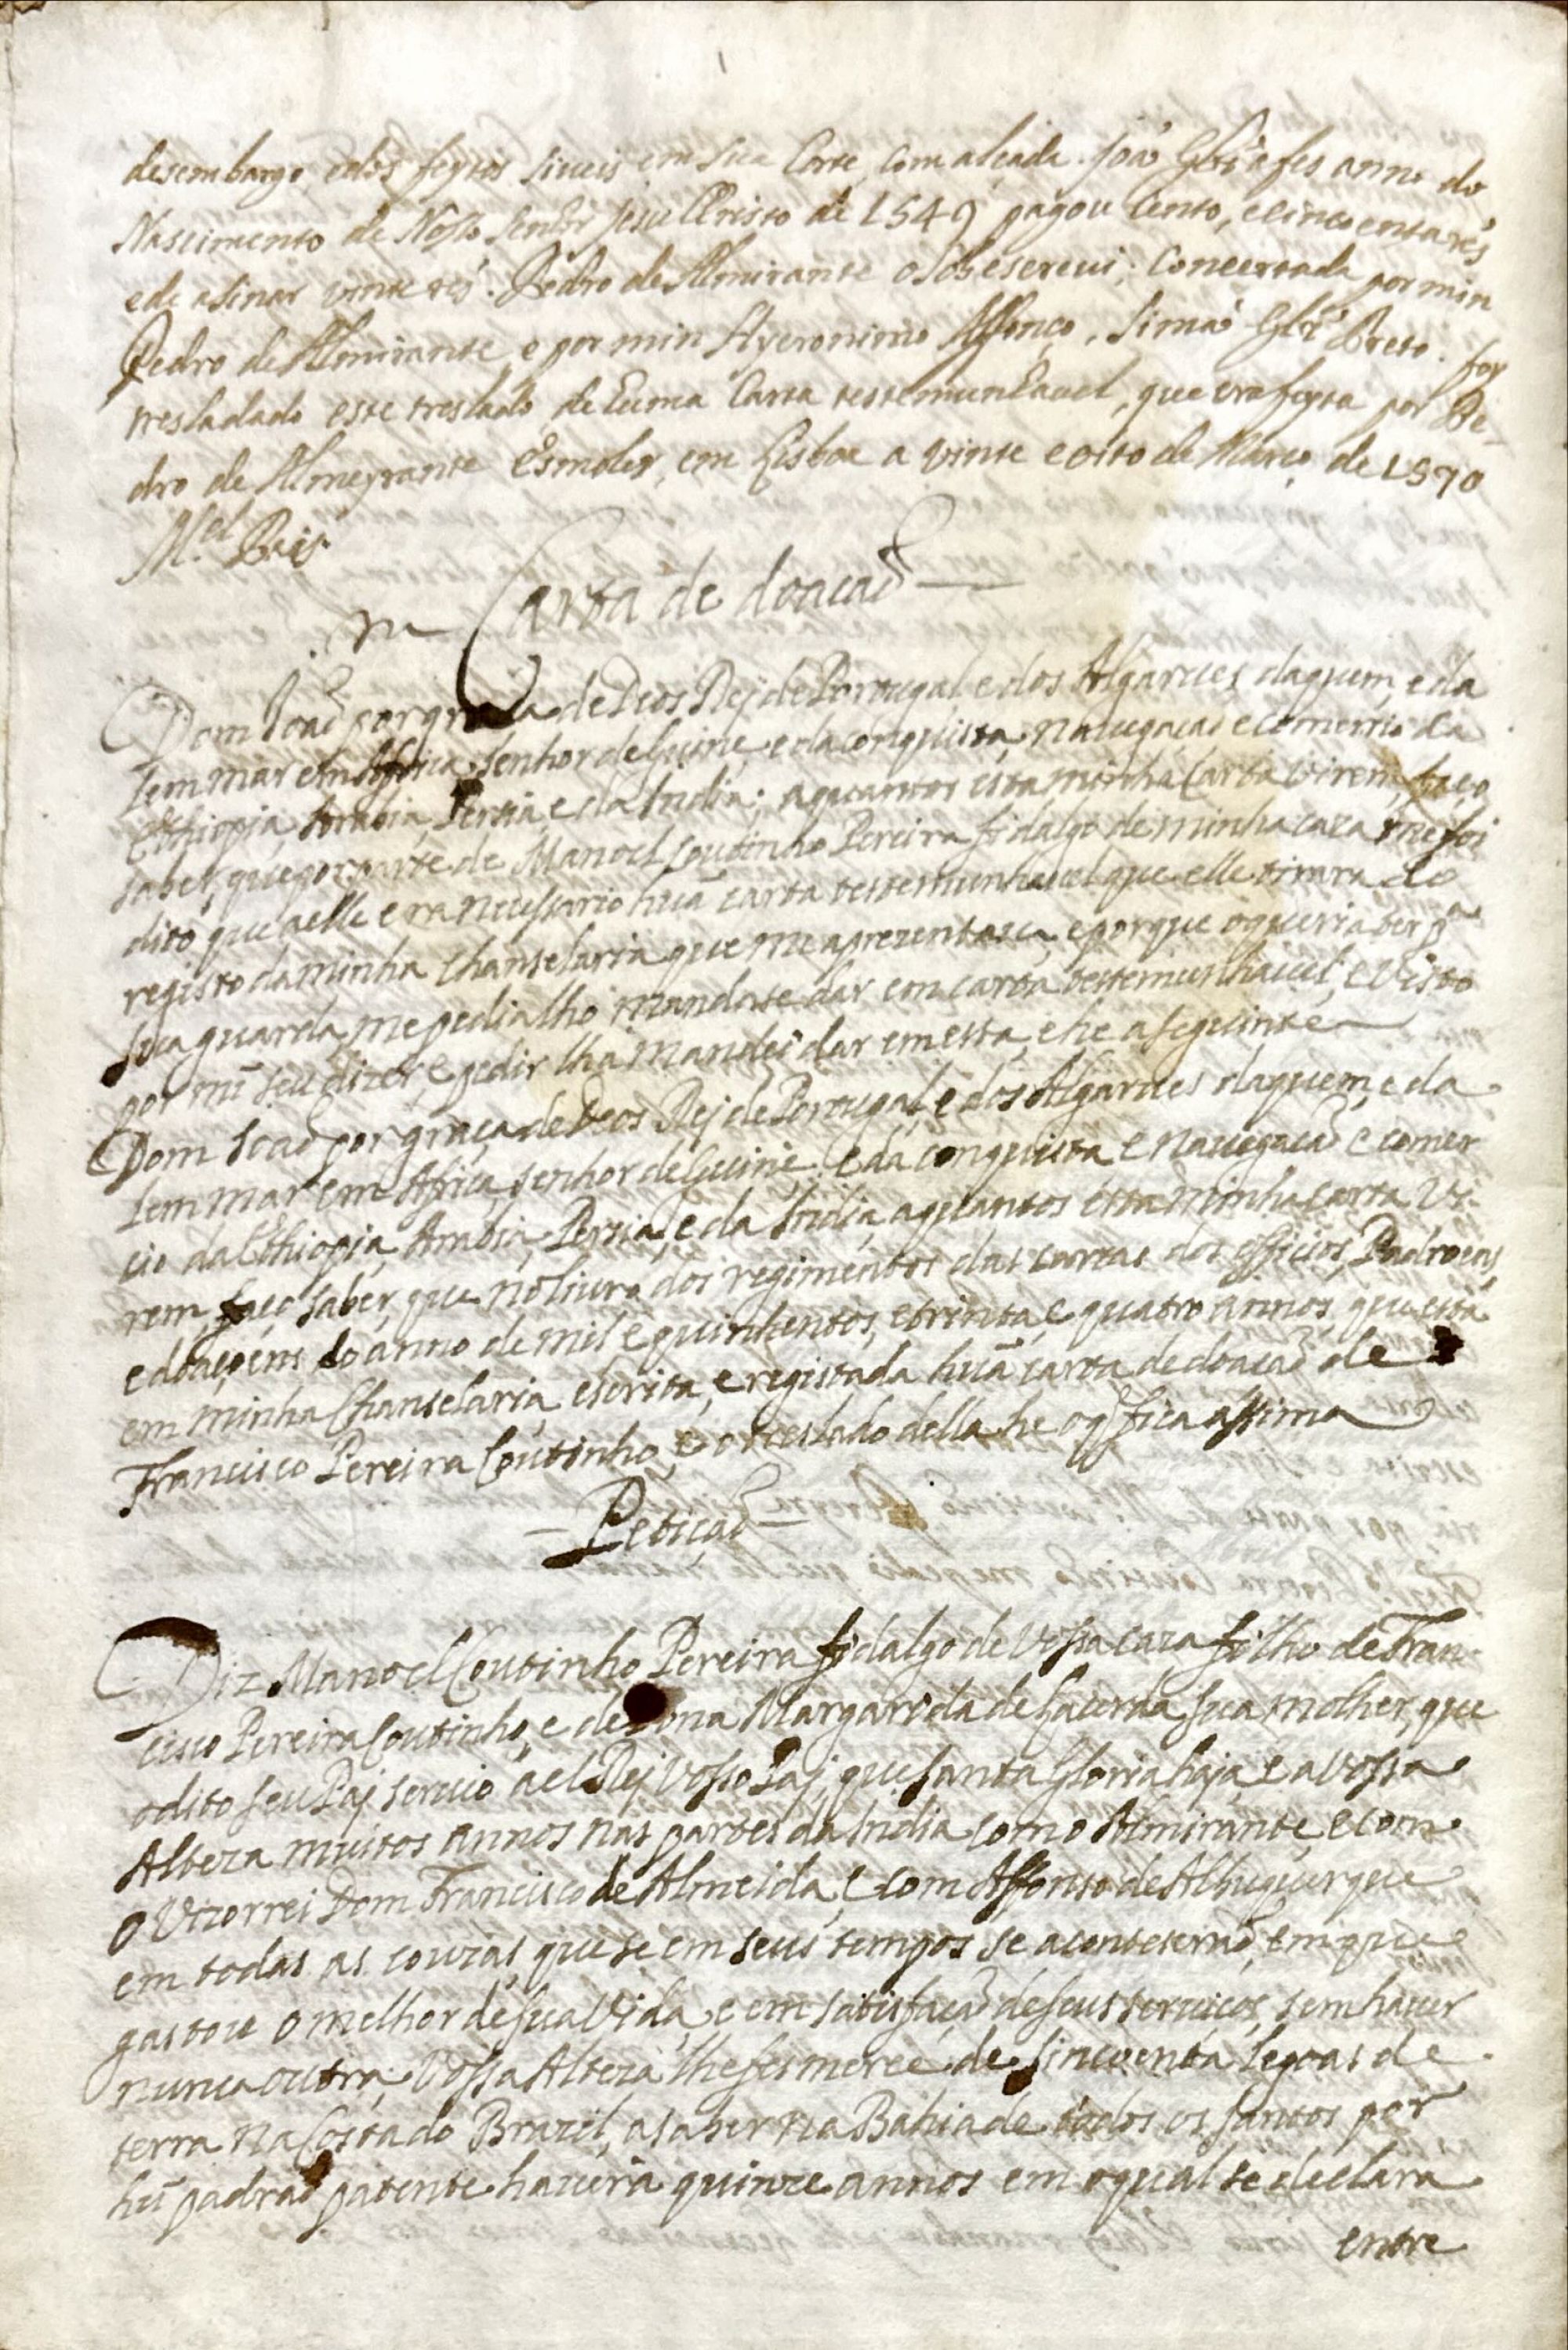 desembargo, e dos feytos siueis em sua Corte, Com alçada. Joaõ Glz̃ a fes anno do
Nascimento de Nosso Senhor Jesu Christo de 1549 pagou Cento, e cincoenta rés
e de asinar vinte rés. Pedro de Almirante o sobescreui; Concertada por min
Pedro de Almirante, e por min Hyeronimo Affonço, Simaõ Glz̃ Preto. foy
tresladado este treslado de huma Carta testemunhauel, que era feyta por Pe-
dro de Almeyrante Esmoler, em Lisboa a vinte e oito de Março de 1570
M.el Reis
Carta de doacaõ
Dom Joaõ por graça de Deos Rej de Portugal e dos Algarues daquem, e da
lem mar em Africa, senhor de Guine, e da conquista, nauegacaõ e comercio da
Ethiopia, Arabia, Persia, e da India; aquantos esta minha Carta virem, faço
saber, que por parte de Manoel Coutinho Pereira fidalgo de minha caza me foi
dito que aelle era necessario huã carta testemunhauel que elle tirara do
registo da minha Chanselaria que me aprezentaua, e porque o queria ter pª
sua guarda, me pedia lho mandase dar em carta testemunhauel, e visto
por mĩ seu dizer, e pedir lha mandei dar em esta, e he a seguinte
Dom Joaõ por graça de Deos Rej de Portugal, e dos Algarues daquem, e da
lem mar em Africa, senhor de Guine, e da conquista e nauegacaõ e comer
cio da Ethiopia, Arabia, Persia, e da India, aquantos esta minha carta vi-
rem, faço saber, que no liuro dos regimentos das cartas dos officios, Padroens,
e doaçoens do anno de mil e quinhentos, e trinta, e quatro annos, que está
em minha Chanselaria, escrita, e registada huã carta de doacaõ de
Francisco Pereira Coutinho, e o treslado della he o q̃ fica assima
Petiçaõ
Diz Manoel Coutinho Pereira fidalgo de Vossa caza filho de Fran-
cisco Pereira Coutinho, e de Dona Margarida de Lacerda sua molher, que
o dito seu Paj seruio a el Rej Vosso Paj, que santa Gloria haja, e a Vossa
Alteza muitos annos nas partes da India como Almirante, e com
o Vizorrei Dom Francisco de Almeida, e com Affonso de Albuquerque
em todas as couzas, que se em seus tempos se aconteseraõ, em que
gastou o melhor de sua vida, e em satisfaçaõ de seus seruiços, sem hauer
nunca outra, Vossa Alteza lhe fes merce de sincoenta legoas de
terra na Costa do Brazil, a saber na Bahia de todos os santos por
hũ padraõ patente hauera quinze annos em o qual se declara
entre